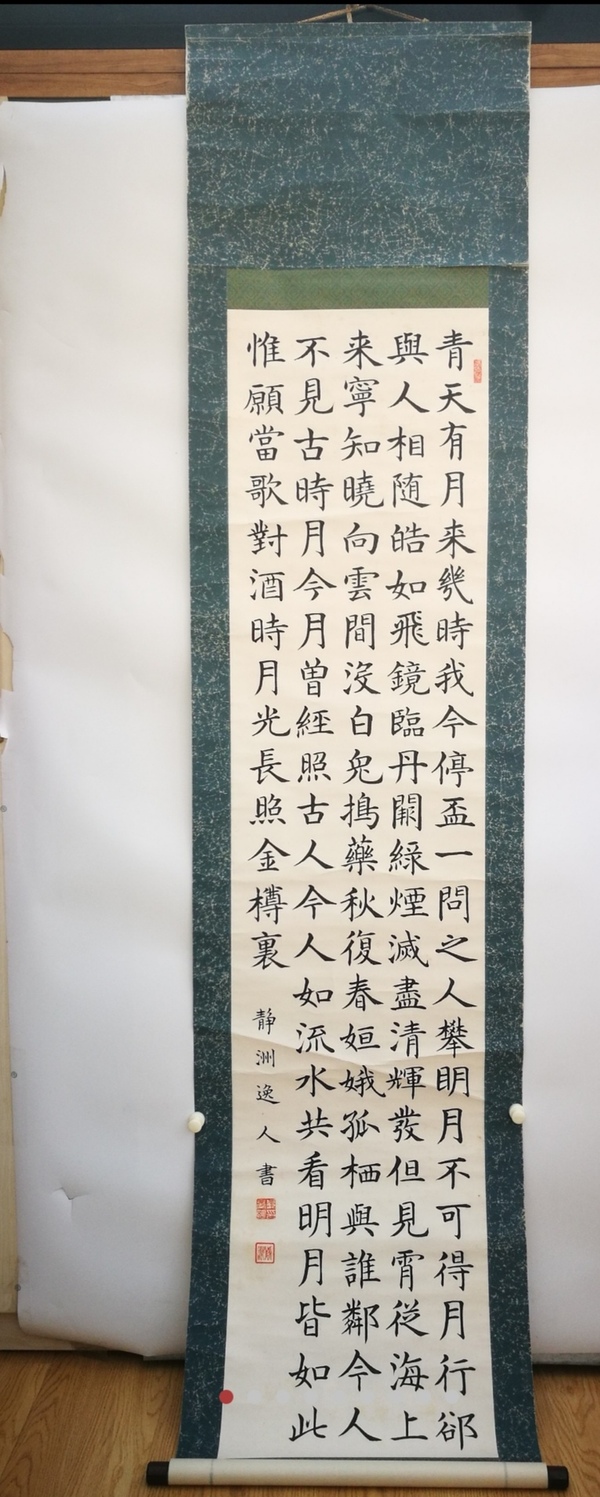 青天有月来幾時我今停盃一問之人攀眀月不可得月行郤
與人相随皓如飛鏡臨丹闕綠煙滅盡清輝發但見霄從海上
来寧知曉向雲間沒白兔搗藥秋復春姮娥孤栖與誰鄰今人
不見古時月今月曽經照古人今人如流水共看明月皆如此
惟願當歌對酒時月光長照金樽裏
静洲逸人書